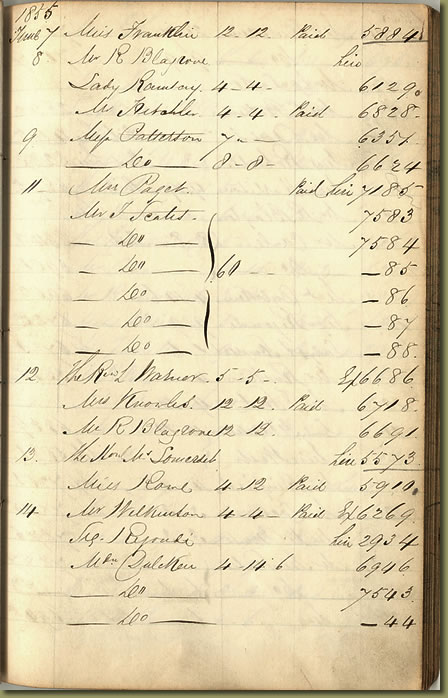 1855
June 7 Miss Franklin 12-12. Paid 5884
8 Mr R Blagrove
Lady Ramsay 4-4- 6129.
Mr 4-4. Paid 6828-
9 Miss Patterson 7-- 6351
— Do — 8-8- 6624
11 Miss Paget. Paid 7185
Mr T 7583
— Do — 7584
— Do — 60 -- -85
— Do — -86
— Do — -87
— Do — -88.
12 The Revd Warner 5-5- Ex 6686
Mrs Knowles. 12-12. Paid 6718
Mr R Blagrove 12 12. 6691
13. The Hon Mrs Somerset 5573
Miss Rowe 4-12 Paid 5910
14 Mr Wilkinson 4-4- Paid Ex 6269.
Sig. 2934
4-14 6 6946
— Do — 7543
— Do — -44